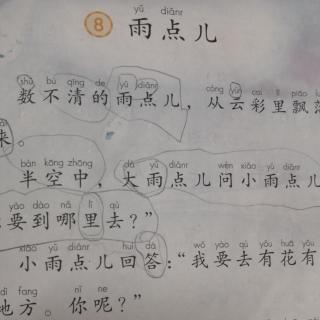 yǔ diǎnr
8 雨点儿
shǔ bù qīng de yǔ diǎnr cóng yún cai lǐ piāo
数不清的雨点儿，从云彩里飘落
来。
bàn kōng zhōng dà yǔ diǎnr wèn xiǎo yǔ diǎnr
半空中，大雨点儿问小雨点儿
yào dào nǎ lǐ qù
要到哪里去？”
xiǎo yǔ diǎnr huí dá wǒ yào qù yǒu huā yǒu
小雨点儿回答：“我要去有花有
dì fang nǐ ne
地方。你呢？”